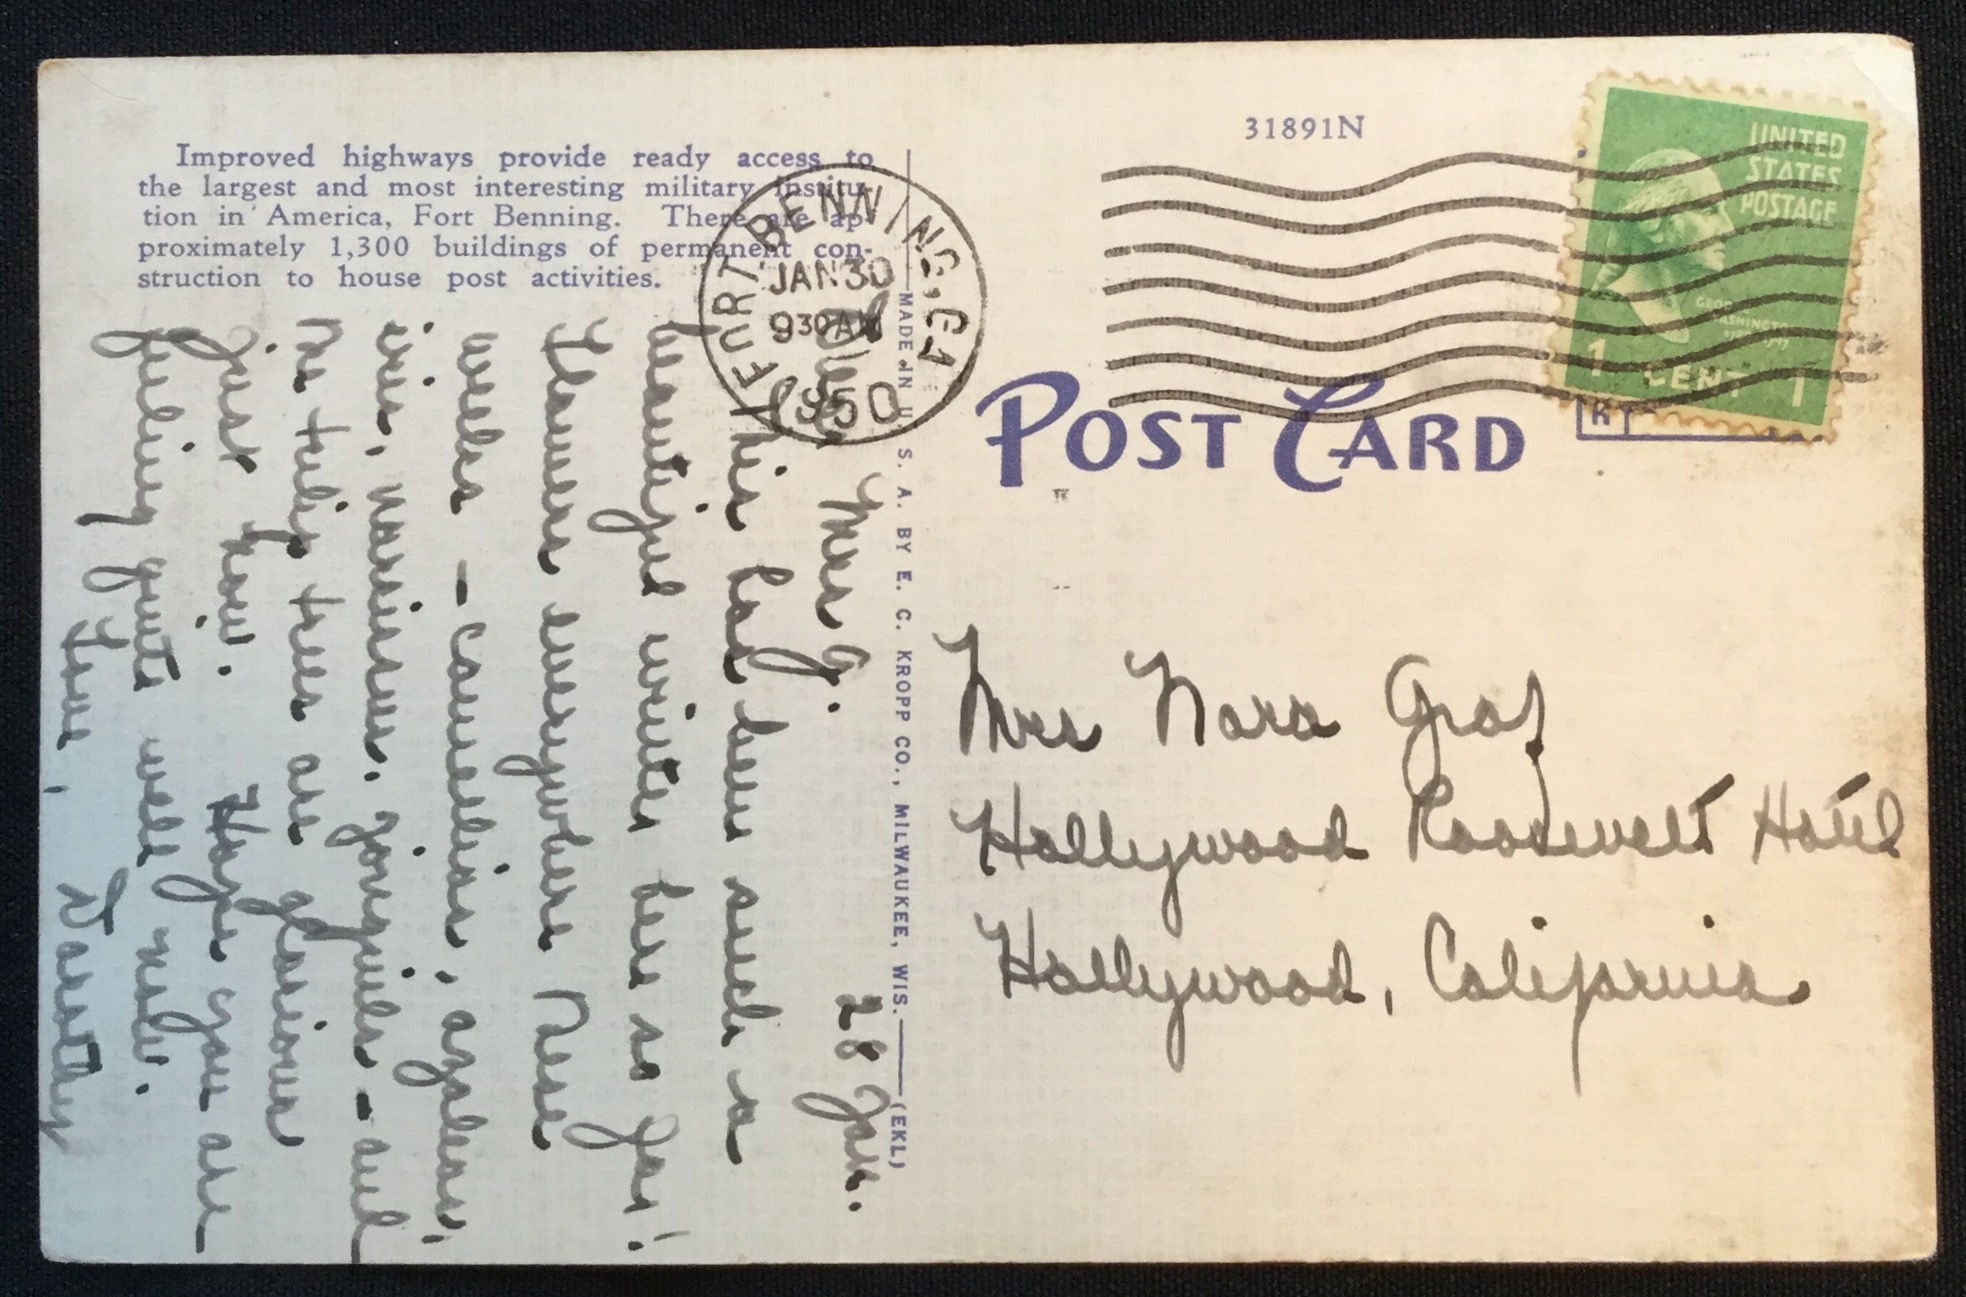 Improved highways provide ready access to
the largest and most interesting military institu-
tion in America, Fort Benning. There are ap-
proximately 1,300 buildings of permanent con-
struction to house post activities.
31891N
UNITED
STATES
POSTAGE
GEORGE
WASHINGTON
1 CENT 1
FORT BENNING, GA
JAN 30
930 AM
1950
POST CARD
MADE IN U. S. A. BY E. C. KROPP CO., MILWAUKEE, WIS. (EKL)
28 Jan.
Dear Mrs G.
This has been such a
beautiful winter here so far!
Flowers everywhere these
weeks - camellias, azaleas,
iris, narcissus, jonquils - and
the tulip trees are glorious
just now. Hope you are
feeling quite well now.
Love, Dorothy
Mrs Nora Graf
Hollywood Roosevelt Hotel
Hollywood, California